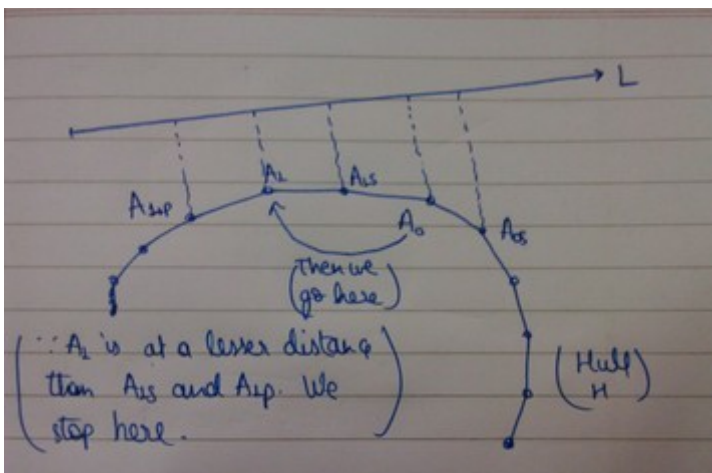 L
A₁
A₁s
A₁p
A₀
A₀s
(Then we
go here)
(∵ A₁ is at a lesser distance
than A₁s and A₁p. We
stop here.)
(Hull
H)